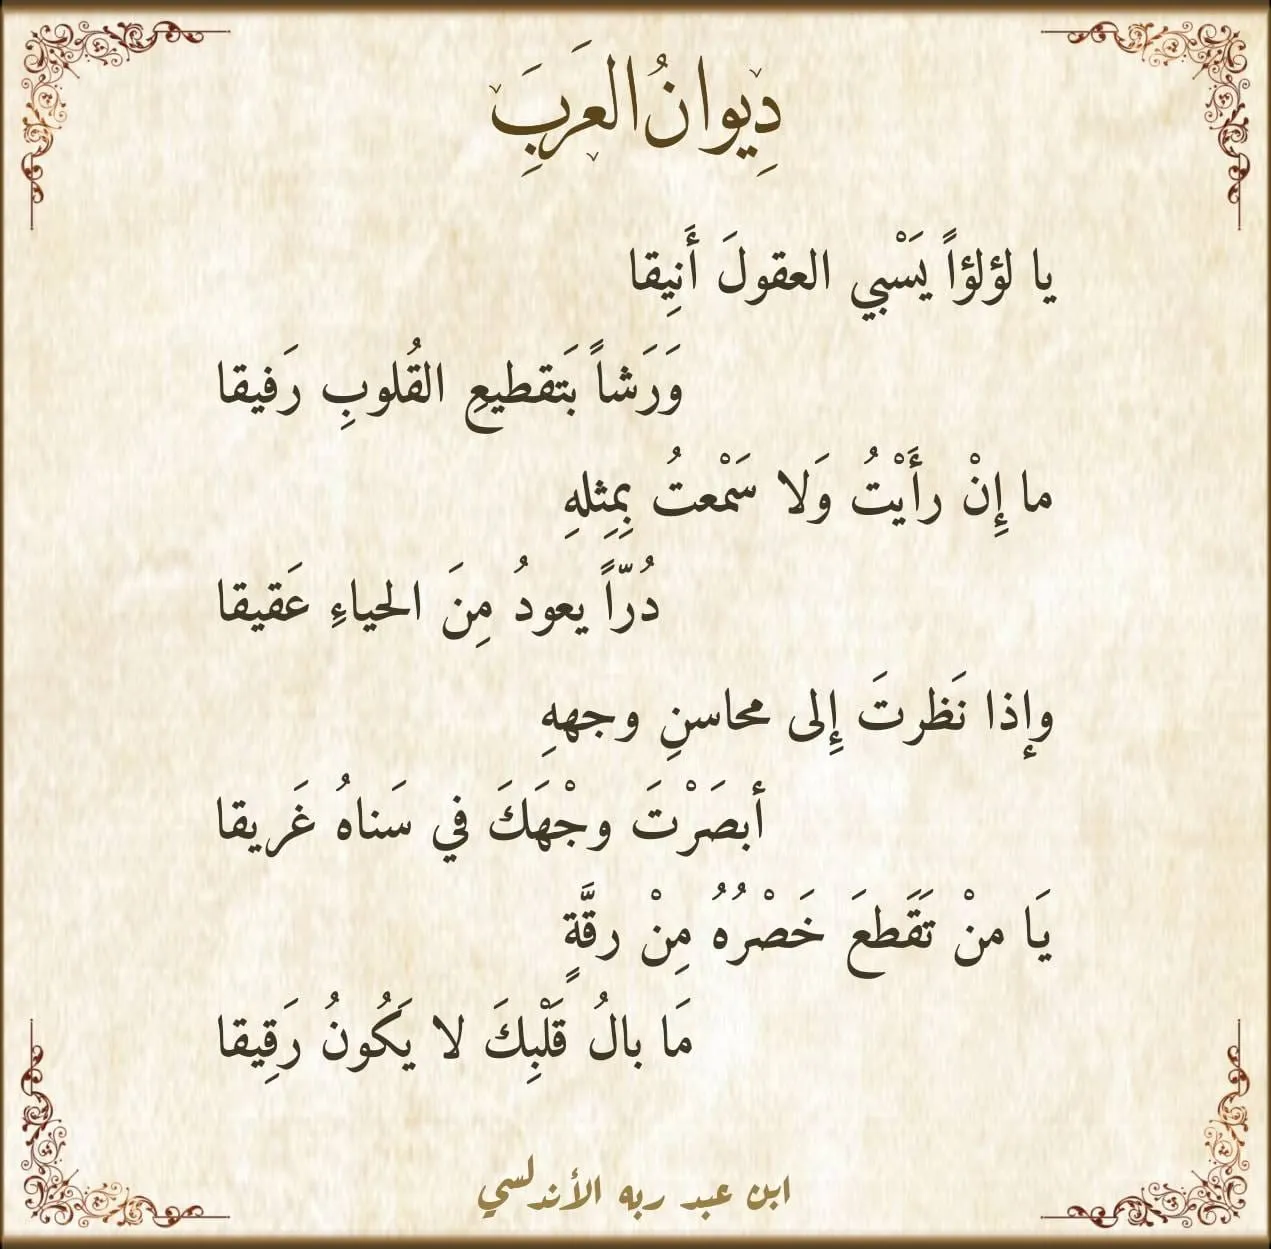 دِيوانُ العَرَبَِ
يا لؤلؤاً يَسْبي العقولَ أَنِيقا
وَرَشاً بَتقطيعِ القُلوبِ رَفيقا
ما إِنْ رأَيْتُ وَلا سَمْعتُ بِمِثلهِ
دُرّاً يعودُ مِنَ الحياءِ عَقيقا
وإذا نَظرتَ إِلى محاسنِ وجههِ
أبصَرْتَ وجْهَكَ في سَناهُ غَريقا
يَا منْ تَقَطعَ خَصْرُهُ مِنْ رقَّةٍ
مَا بالُ قَلْبِكَ لا يَكُونُ رَقِيقا
ابن عبد ربه الأندلسي